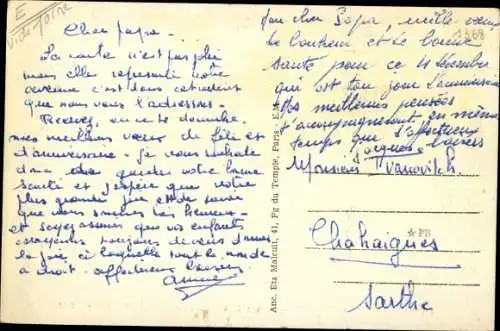 E
Vide Poire
Cher papa -
La carte n'est pas jolie
mais elle représente notre
c'est dans cet endroit
que nous vous l'adressons -
Recevez, en ce 14 décembre,
mes meilleurs vœux de fête et
d'anniversaire - je vous souhaite
de garder votre bonne
santé et j'espère que votre
plus grande joie est de savoir
que nous sommes bien heureux -
et soyez assuré que vos enfants
toujours de vous donner
la joie à laquelle tout le monde
a droit - affectueux baisers
Annie
Anc. Ets Malcuit, 41, Fg du Temple, Paris - E.M.
Mon cher Papa, mille vœux
de bonheur et de bonne
santé pour ce 14 décembre
qui est ton jour d'anniversaire
Nos meilleures pensées
t'accompagnent, en même
temps que d'affectueux
baisers
Jacques
Monsieur Ivanovitch
Chahaignes
★ PB
Sarthe